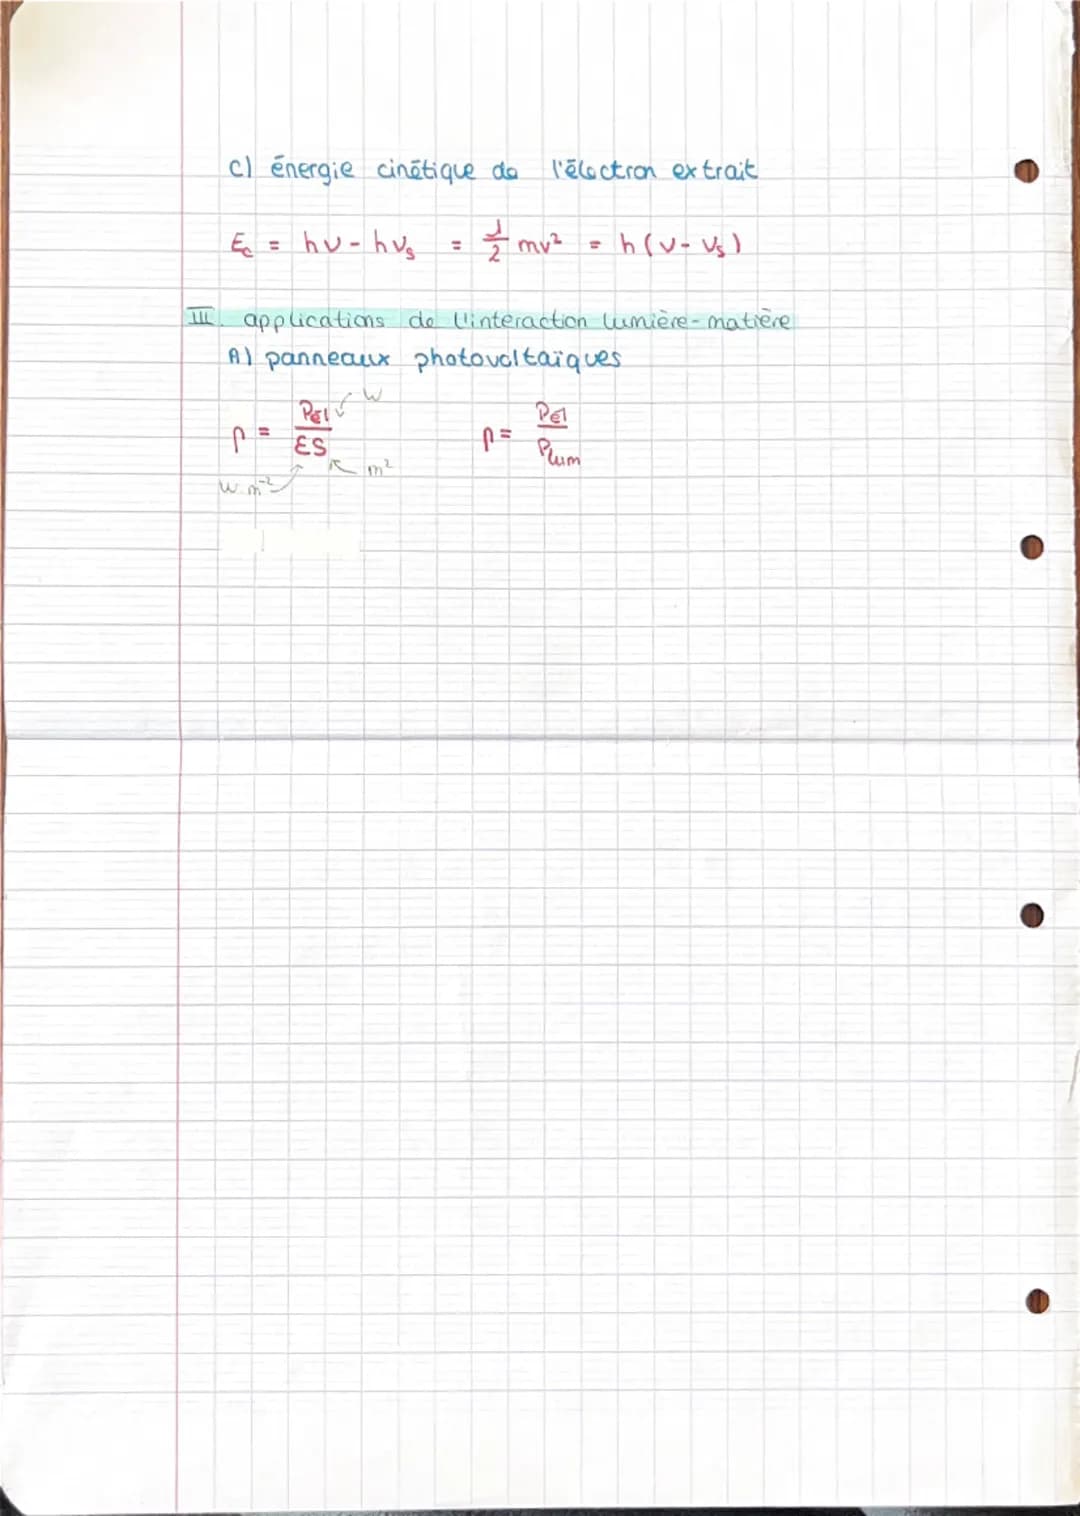 c) énergie cinétique de l'électron extrait
Ec = hν - hνs = 1/2 mv² = h(ν - νs)
III. applications de l'interaction lumière-matière
A) panneaux photovoltaïques
η = Pél/ES η = Pél/Plum
W
m²
W.m⁻²